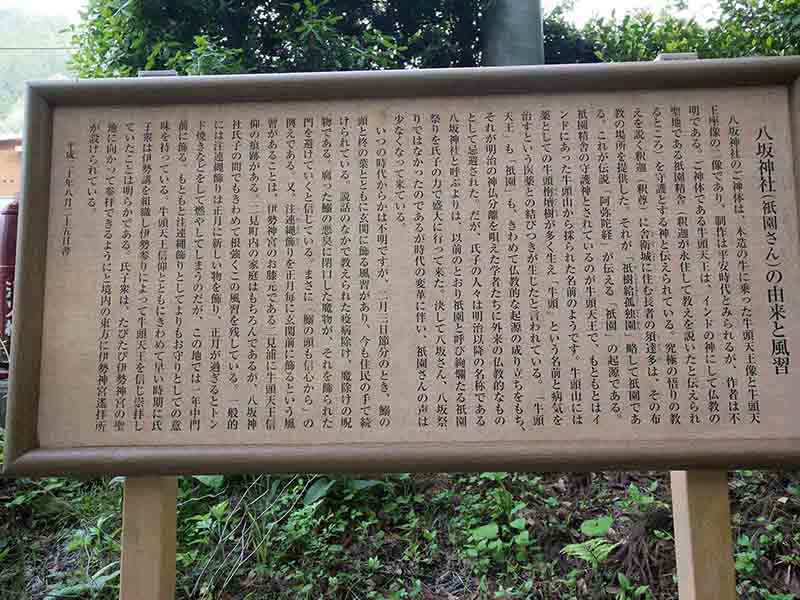 八坂神社（祇園さん）の由来と風習
八坂神社のご神体は、木造の牛に乗った牛頭天王像と牛頭天
王座像の二像であり、制作は平安時代とみられるが、作者は不
明である。ご神体である牛頭天王は、インドの神にして仏教の
聖地である祇園精舎（釈迦が永住して教えを説いたと伝えられ
るところ）を守護とする神と伝えられている。究極の悟りの教
えを説く釈迦（釈尊）に舎衛城に住む長者の須達多は、その布
教の場所を提供した。それが「祇樹給孤独園」略して祇園であ
る。これが伝説「阿弥陀経」が伝える「祇園」の起源である。
祇園精舎の守護神とされているのが牛頭天王で、もともとはイ
ンドにあった牛頭山から採られた名前のようです。牛頭山には
薬としての牛頭栴壇樹が多く生え「牛頭」という名前と病気を
治すという医薬との結びつきが生じたと言われている。「牛頭
天王」も「祇園」も、きわめて仏教的な起源の成り立ちをもち、
それが明治の神仏分離を唱えた学者たちに外来の仏教的なもの
として忌避された。だが、氏子の人々は明治以降の名称である
八坂神社と呼ぶよりは、以前のとおり祇園と呼び絢爛たる祇園
祭りを氏子の力で盛大に行って来た。決して八坂さん、八坂祭
りではなかったのであるが時代の変革に伴い、祇園さんの声は
少なくなって来ている。
いつの時代からかは不明ですが、二月三日節分のとき、鰯の
頭と柊の葉とともに玄関に飾る風習があり、今も住民の手で続
けられている。説話のなかで教えられた疫病除け、魔除けの呪
物である。腐った鰯の悪臭に閉口した魔物が、それを飾られた
門を避けていくと信している。まさに「鰯の頭も信心から」の
例えである。又、注連縄飾りを正月毎に玄関前に飾るという風
習があることは、伊勢神宮のお膝元である二見浦に牛頭天王信
仰の痕跡がある。二見町内の家庭はもちろんであるが、八坂神
社氏子の間でもきわめて根強くこの風習を残している。一般的
には注連縄飾りは正月に新しい物を飾り、正月が過ぎるとトン
ド焼きなどをして燃やしてしまうのだが、この地では一年中門
前に飾る。もともと注連縄飾りとしてよりもお守りとしての意
味を持っている。牛頭天王信仰とともにきわめて早い時期に氏
子衆は伊勢講を組織し伊勢参りによって牛頭天王を信じ崇拝し
ていたことは明らかである。氏子衆は、たびたび伊勢神宮の聖
地に向かって参拝できるようにと境内の東方に伊勢神宮遙拝所
が設けられている。
平成二十年八月二十五日書